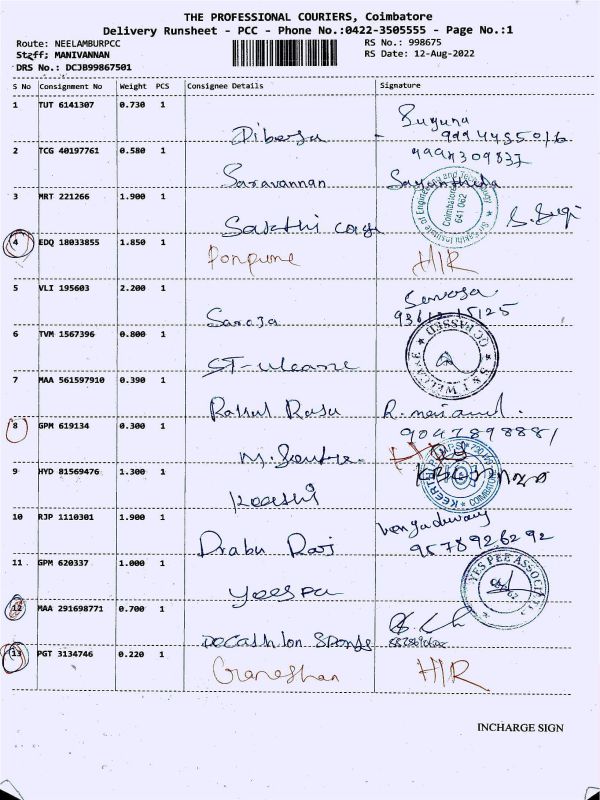 THE PROFESSIONAL COURIERS, Coimbatore
Delivery Runsheet - PCC - Phone No.:0422-3505555 - Page No.:1
Route: NEELAMBURPCC
RS No.: 998675
Staff: MANIVANNAN
RS Date: 12-Aug-2022
DRS No.: DCJB99867501
S No Consignment No Weight PCS Consignee Details Signature
1 TUT 6141307 0.730 1 Suguna
2 TCG 40197761 0.580 1 9994309837
Saravannan
3 MRT 221266 1.900 1
Sakthi
4 EDQ 18033855 1.850 1 Ponpume HIR
5 VLI 195603 2.200 1
Saroja
6 TVM 1567396 0.800 1
7 MAA 561597910 0.390 1
Rahul Rasu
8 GPM 619134 0.300 1 9047898881
9 HYD 81569476 1.300 1
10 RJP 1110301 1.900 1 9578926292
Prabu Raj
11 GPM 620337 1.000 1 YES PEE ASSOCIATE
Yeespee
12 MAA 291698771 0.700 1
Decathlon Sports
13 PGT 3134746 0.220 1 Ganeshan HIR
INCHARGE SIGN